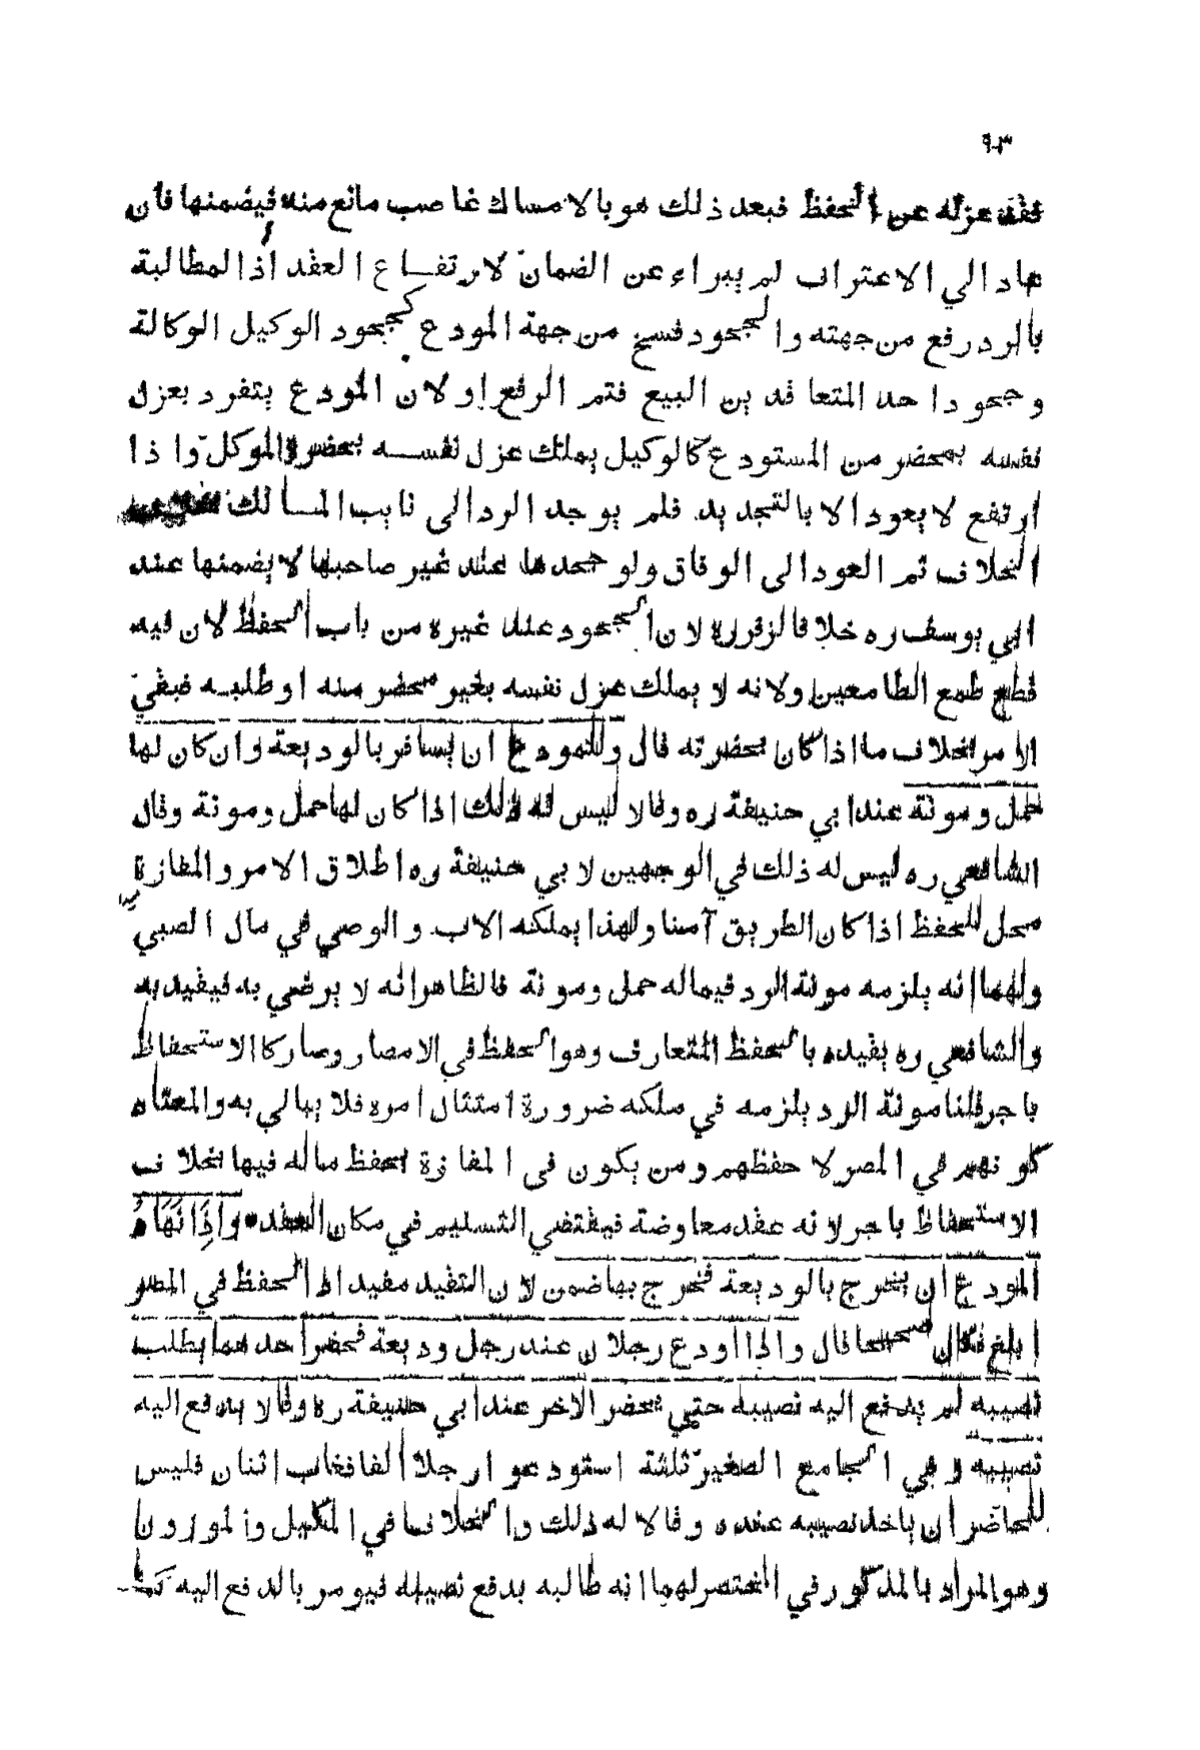 ٩٣
فقد عزله عن الحفظ فبعد ذلك هو بالامساك غاصب مانع منه فيضمنها فان
عاد الي الاعتراف لم يبراء عن الضمان لارتفاع العقد اذ المطالبة
بالرد رفع من جهته والجحود فسخ من جهة المودع كجحود الوكيل الوكالة
وجحود احد المتعاقدين البيع فتم الرفع او لان المودع يتفرد بعزل
نفسه بمحضر من المستودع كالوكيل يملك عزل نفسه بحضرة الموكل واذا
ارتفع لا يعود الا بالتجديد فلم يوجد الرد الى نايب المالك
الخلاف ثم العود الى الوفاق ولو جحدها عند غير صاحبها لا يضمنها عند
ابي يوسف ره خلافا لزفر ره لان الجحود عند غيره من باب الحفظ لان فيه
قطع طمع الطامعين ولانه لا يملك عزل نفسه بغير محضر منه او طلبه فبقي
الامر بخلاف ما اذا كان بحضرته قال وللمودع ان يسافر بالوديعة وان كان لها
حمل ومونة عند ابي حنيفة ره وقالا ليس له ذلك اذا كان لها حمل ومونة وقال
الشافعي ره ليس له ذلك في الوجهين لابي حنيفة ره اطلاق الامر والمفازة
محل للحفظ اذا كان الطريق آمنا ولهذا يملكه الاب والوصي في مال الصبي
ولهما انه يلزمه مونة الرد فيما له حمل ومونة فالظاهر انه لا يرضي به فيفيد به
والشافعي ره يقيده بالحفظ المتعارف وهو الحفظ في الامصار وصار كالاستحفاظ
باجر قلنا مونة الرد يلزمه في ملكه ضرورة امتثال امره فلا يبالي به والمعتاد
كونهم في المصر لا حفظهم ومن يكون في المفازة يحفظ ماله فيها بخلاف
الاستحفاظ باجر لانه عقد معاوضة فيقتضي التسليم في مكان العقد واذا نهاه
المودع ان يخرج بالوديعة فخرج بها ضمن لان التقيد مفيد اذ الحفظ في المصر
ابلغ فكان صحيحا قال واذا اودع رجلان عند رجل وديعة فحضر احدهما يطلب
نصيبه لم يدفع اليه نصيبه حتي يحضر الاخر عند ابي حنيفة ره وقالا يدفع اليه
نصيبه وفي الجامع الصغير ثلثة استودعوا رجلا الفا فغاب اثنان فليس
للحاضر ان ياخذ نصيبه عنده وقالا له ذلك والخلاف في المكيل والموزون
وهو المراد بالمذكور في المختصر لهما انه طالبه بدفع نصيبه فيومر بالدفع اليه كما